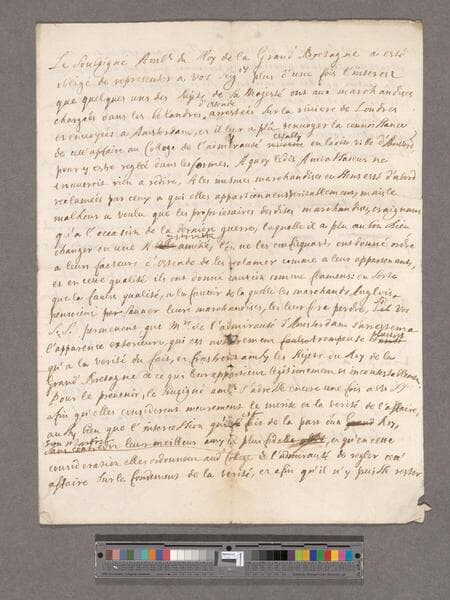 Le Soussigné Ambr. du Roy de la Grand Bretagne a esté
obligé de representer a vos Seigries plus d'une fois l'interest
que quelques uns des sujets de sa Majesté ont aux marchandises
chargées dans les belandres d'Ostende arrestées sur la riviere de Londres
et envoyées a Amsterdam, et il leur a plû renvoyer la connoissance
de cett' affaire au College de l'admirauté en la dite ville d'Amsterd
pour y estre reglé dans les formes. A quoy ledit Ambassadeur ne
trouveroit rien a redire, si les mesmes marchandises eussent d'abord
reclamées par ceux a qui elles appartiennent veritablement, mais le
malheur a voulu que les proprietaires desdites marchandises, craignans
qu'a l'occasion de la derniere guerre, laquelle il a plû au bon Dieu
changer en une amitié, l'on ne les confisquast, ont donné ordre
a leurs facteurs d'Ostende de les reclamer comme a leur appartenants,
et en cette qualité ils ont donné caution comme flamens: en sorte
que la fausse qualité, a la faveur de laquelle les marchands Anglois
pensoient sauver leurs marchandises, les leur fera perdre, si vos
S. S. permettent que Mrs de l'admirauté d'Amsterdam s'arrestent a
l'apparence exterieure, qui est notoirement fausse & trompeuse plustost
qu'a la verité du fait, et frustrent ainsy les sujets du Roy de la
Grand Bretagne de ce qui leur appartient legitimement et incontestablement
Pour le prevenir, le Susigné ambr. s'adresse encore une fois a V. S.
afin qu'elles considerent meurement le merite et la verité de l'affaire,
aussy bien que l'intercession qui est faite de la part d'un Roy,
sans contredit leur meilleur amy et plus fidelle et qu'en cette
consideration elles ordonnent aud. College de l'admirauté de regler cett'
affaire sur le fondement de la verité, et afin qu'il n'y puisse rester